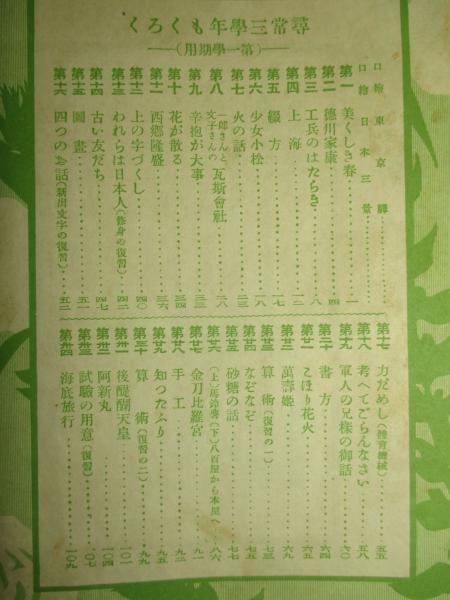 尋常三學年もくろく
(第一學期用)
口繪 東京驛
口繪 日本三景
第一 美くしき春 一
第二 德川家康 四
第三 工兵のはたらき 八
第四 上海 一二
第五 綴方 一七
第六 少女小松 一八
第七 火の話 二三
第八 一郎さんと文子さんの 瓦斯會社 二八
第九 辛抱が大事 三三
第十 花が散る 三四
第十一 西鄕隆盛 三六
第十二 上の字づくし 四〇
第十三 われらは日本人(修身の復習) 四二
第十四 古い友だち 四七
第十五 圖畫 五一
第十六 四つのお話(新出文字の復習) 五二
第十七 力だめし(體育機械) 五五
第十八 考へてごらんなさい 五八
第十九 軍人の兄樣の御話 六〇
第二十 書方 六四
第廿一 こほり花火 六五
第廿二 萬壽姬 六九
第廿三 算術(復習の一) 七三
第廿四 なぞなぞ 七五
第廿五 砂糖の話 七七
第廿六 (上)馬鈴薯(下)八百屋から本屋へ 八六
第廿七 金刀比羅宮 九一
第廿八 手工 九二
第廿九 知つたふり 九五
第三十 算術(復習の二) 九九
第卅一 後醍醐天皇 一〇一
第卅二 阿新丸 一〇四
第卅三 試驗の用意(復習) 一〇七
第卅四 海底旅行 一〇九